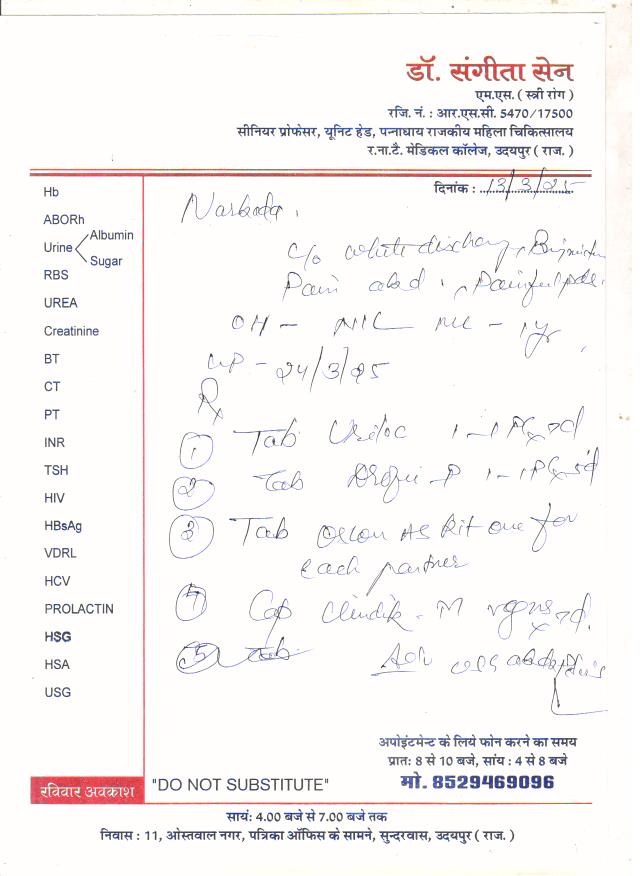 डॉ. संगीता सेन
एम.एस. ( स्त्री रोग )
रजि. नं. : आर.एस.सी. 5470/17500
सीनियर प्रोफेसर, यूनिट हेड, पन्नाधाय राजकीय महिला चिकित्सालय
र.ना.टै. मेडिकल कॉलेज, उदयपुर ( राज. )
दिनांक : 13/3/25
Hb
ABORh
Urine Albumin
Sugar
RBS
UREA
Creatinine
BT
CT
PT
INR
TSH
HIV
HBsAg
VDRL
HCV
PROLACTIN
HSG
HSA
USG
c/o white
Pain abd , Painful
OH - NIL ML - 1yr
- 24/3/25
Rx
1 Tab 1-1
2 Tab 1-1
3 Tab AS Kit one for
each partner
4 Cap Clindik - M
5 Tab
Adv USG
"DO NOT SUBSTITUTE"
अपोइंटमेन्ट के लिये फोन करने का समय
प्रात: 8 से 10 बजे, सांय : 4 से 8 बजे
मो. 8529469096
रविवार अवकाश
सायं: 4.00 बजे से 7.00 बजे तक
निवास : 11, ओस्तवाल नगर, पत्रिका ऑफिस के सामने, सुन्दरवास, उदयपुर ( राज. )